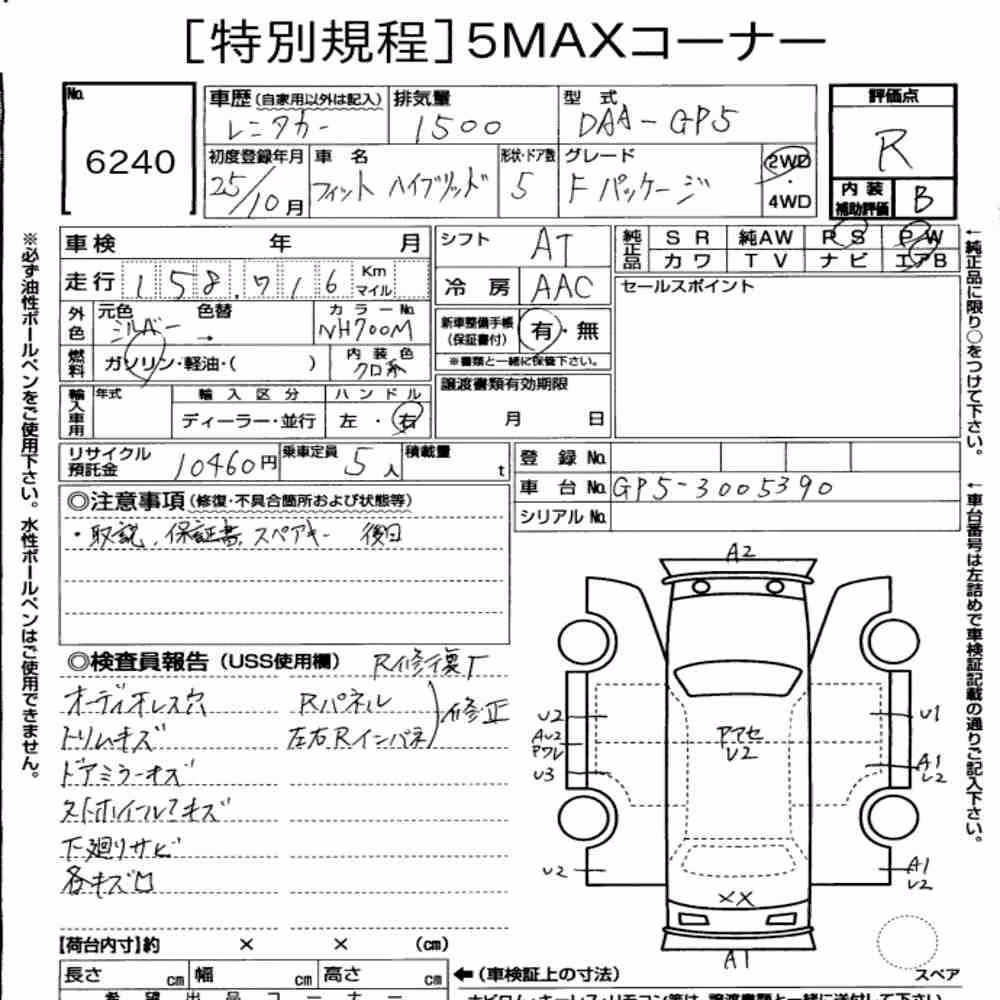 ［特別規程］5MAXコーナー
No.
6240
車歴（自家用以外は記入） 排気量 型 式 評価点
レンタカー 1500 DAA-GP5 R
初度登録年月 車 名 形状・ドア数 グレード 2WD・4WD
25/10月 フィット ハイブリッド 5 Fパッケージ
内装補助評価 B
※必ず油性ボールペンをご使用下さい。水性ボールペンはご使用できません。
車検 年 月
走行 158,716 Km マイル
外色 元色 色替 カラーNo.
シルバー → NH700M
燃料 ガソリン・軽油・( ) 内装色 クロ系
輸入車用 年式 輸入区分 ハンドル
ディーラー・並行 左・右
シフト AT
冷房 AAC
新車整備手帳（保証書付） 有・無
※書類と一緒に保管下さい。
譲渡書類有効期限
月 日
純正品 SR 純AW PS PW
カワ TV ナビ エアB
セールスポイント
←純正品に限り○をつけて下さい。
リサイクル預託金 10460円 乗車定員 5人 積載量 t
登録No.
車台No. GP5-3005390
シリアルNo.
←車台番号は左詰めで車検証記載の通りご記入下さい。
◎注意事項（修復・不具合箇所および状態等）
・取説、保証書、スペアキー 後日
◎検査員報告（USS使用欄） R修復有
オーディオレス穴 Rパネル
トリムキズ 左右Rインパネ）修正
ドアミラーキズ
ストホイールマキズ
下廻りサビ
各キズ凹
A2
U2
AU2
Pワレ
U3
アアセ
U2
U1
A1
U2
U2
A1
U2
XX
A1
スペア
【荷台内寸】約 × × （cm）
長さ cm 幅 cm 高さ cm ←（車検証上の寸法）
希望出品コーナー
ナビロム・キーレス・リモコン等は、譲渡書類と一緒に送付して下さい